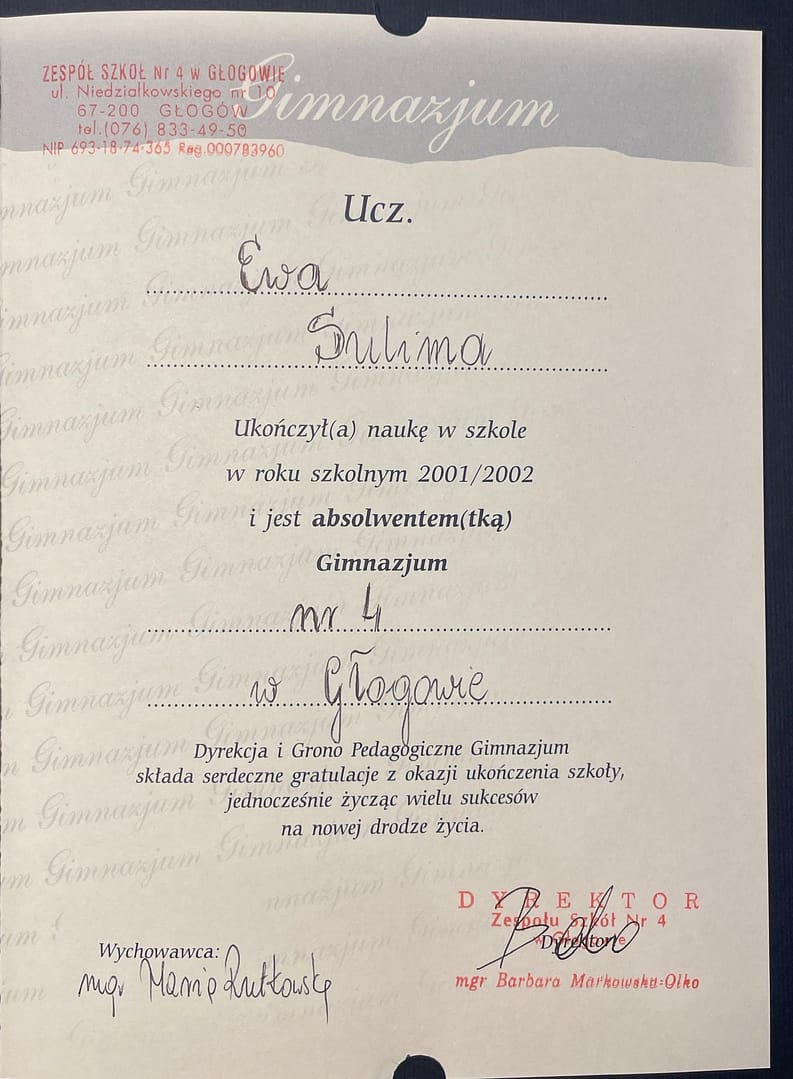 ZESPÓŁ SZKÓŁ Nr 4 w GŁOGOWIE
ul. Niedziałkowskiego nr 10
67-200 GŁOGÓW
tel.(076) 833-49-50
NIP 693-18-74-365 Reg.000783960
Gimnazjum
Ucz.
Ewa
Sulima
Ukończył(a) naukę w szkole
w roku szkolnym 2001/2002
i jest absolwentem(tką)
Gimnazjum
nr 4
w Głogowie
Dyrekcja i Grono Pedagogiczne Gimnazjum
składa serdeczne gratulacje z okazji ukończenia szkoły,
jednocześnie życząc wielu sukcesów
na nowej drodze życia.
DYREKTOR
Zespołu Szkół Nr 4
w Głogowie
Dyrektor:
mgr Barbara Markowska-Olko
Wychowawca:
mgr Maria Rutkowska